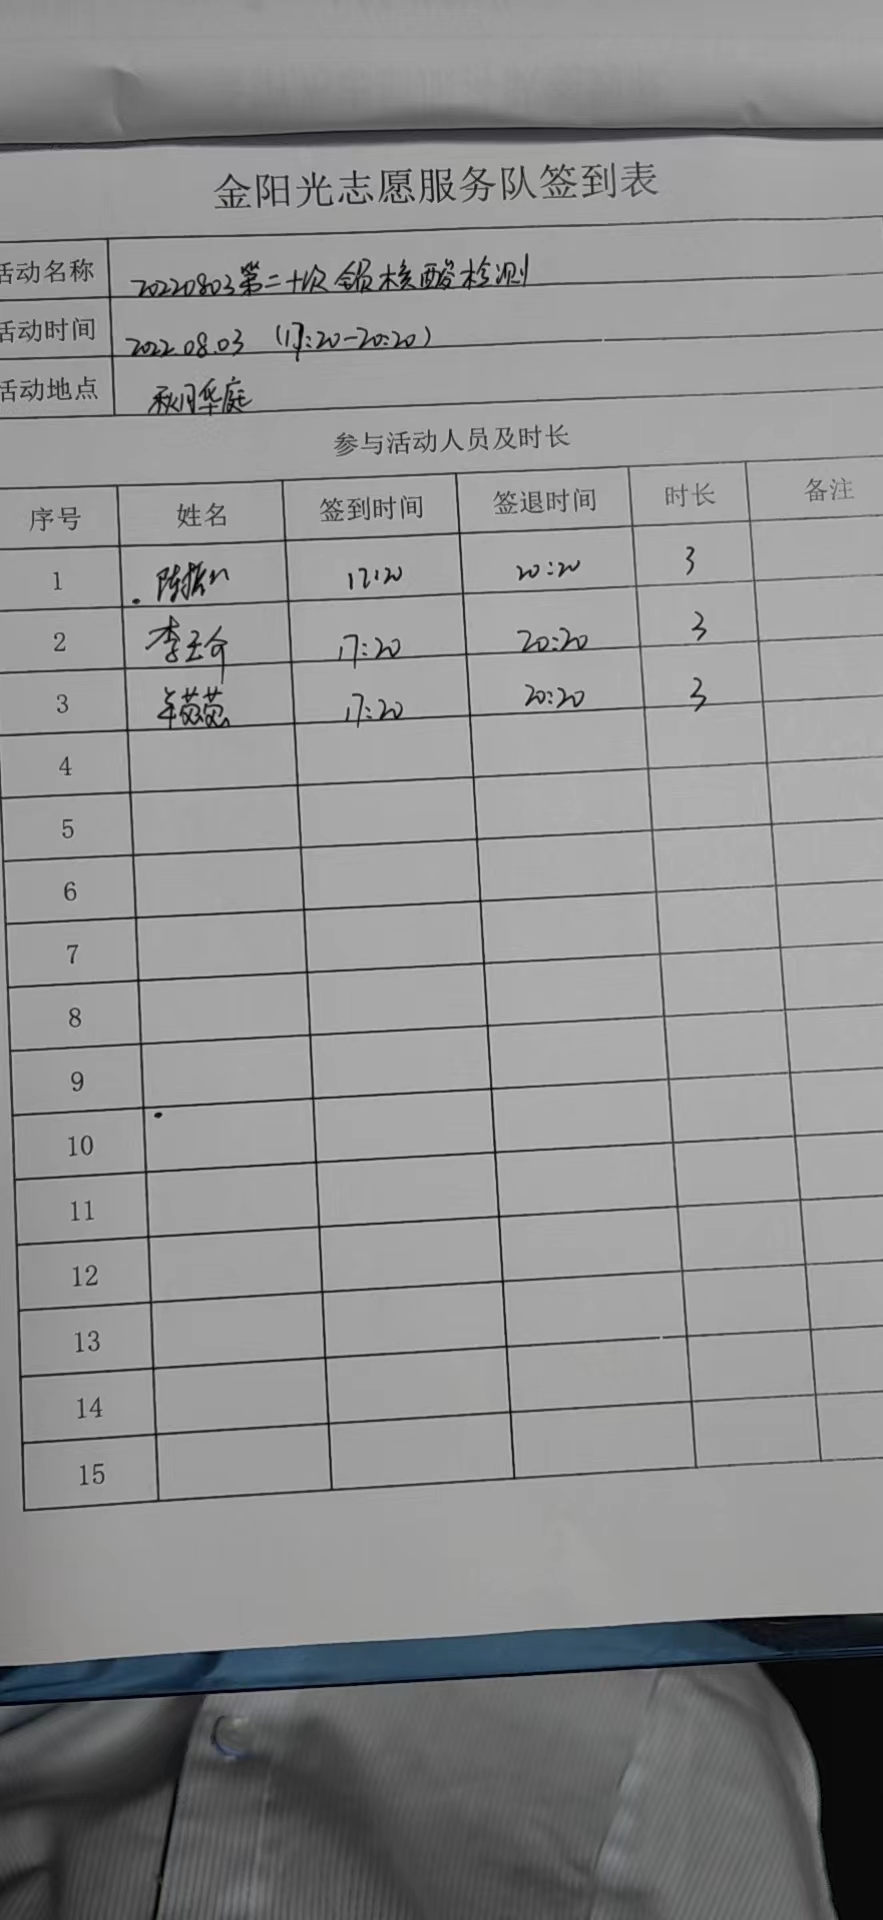 金阳光志愿服务队签到表
活动名称 20220803第二十次全员核酸检测
活动时间 2022.08.03 (17:20-20:20)
活动地点 秋月华庭
参与活动人员及时长
序号 姓名 签到时间 签退时间 时长 备注
1 17:20 20:20 3
2 李玉介 17:20 20:20 3
3 17:20 20:20 3
4
5
6
7
8
9
10
11
12
13
14
15